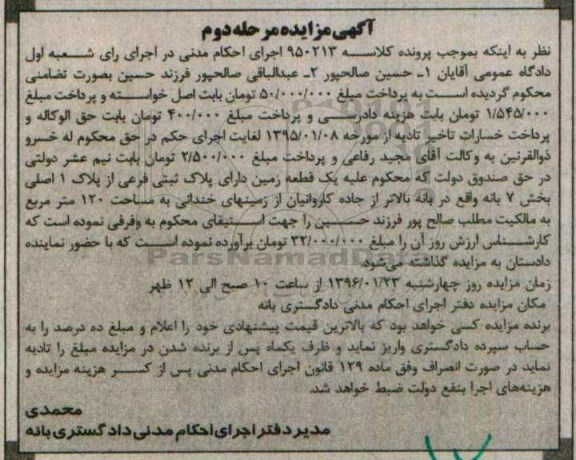 آگهی مزایده مرحله دوم
نظر به اینکه بموجب پرونده کلاسه ۹۵۰۲۱۳ اجرای احکام مدنی در اجرای رای شعبه اول
دادگاه عمومی آقایان ۱ـ حسین صالحپور ۲ـ عبدالباقی صالحپور فرزند حسین بصورت تضامنی
محکوم گردیده است به پرداخت مبلغ ۵۰/۰۰۰/۰۰۰ تومان بابت اصل خواسته و پرداخت مبلغ
۱/۵۴۵/۰۰۰ تومان بابت هزینه دادرسی و پرداخت مبلغ ۴۰۰/۰۰۰ تومان بابت حق الوکاله و
پرداخت خسارات تاخیر تادیه از مورخه ۱۳۹۵/۰۱/۰۸ لغایت اجرای حکم در حق محکوم له خسرو
ذوالقرنین به وکالت آقای مجید رفاعی و پرداخت مبلغ ۲/۵۰۰/۰۰۰ تومان بابت نیم عشر دولتی
در حق صندوق دولت که محکوم علیه یک قطعه زمین دارای پلاک ثبتی فرعی از پلاک ۱ اصلی
بخش ۷ بانه واقع در بانه بالاتر از جاده کاروانیان از زمینهای خندانی به مساحت ۱۲۰ متر مربع
به مالکیت مطلب صالح پور فرزند حسین را جهت استیفای محکوم به وفرفی نموده است که
کارشناس ارزش روز آن را مبلغ ۳۲/۰۰۰/۰۰۰ تومان برآورده نموده است که با حضور نماینده
دادستان به مزایده گذاشته می‌شود.
زمان مزایده روز چهارشنبه ۱۳۹۶/۰۱/۲۳ از ساعت ۱۰ صبح الی ۱۲ ظهر
مکان مزایده دفتر اجرای احکام مدنی دادگستری بانه
برنده مزایده کسی خواهد بود که بالاترین قیمت پیشنهادی خود را اعلام و مبلغ ده درصد را به
حساب سپرده دادگستری واریز نماید و ظرف یکماه پس از برنده شدن در مزایده مبلغ را تادیه
نماید در صورت انصراف وفق ماده ۱۲۹ قانون اجرای احکام مدنی پس از کسر هزینه مزایده و
هزینه‌های اجرا بنفع دولت ضبط خواهد شد.
محمدی
مدیر دفتر اجرای احکام مدنی دادگستری بانه
ParsNamadData